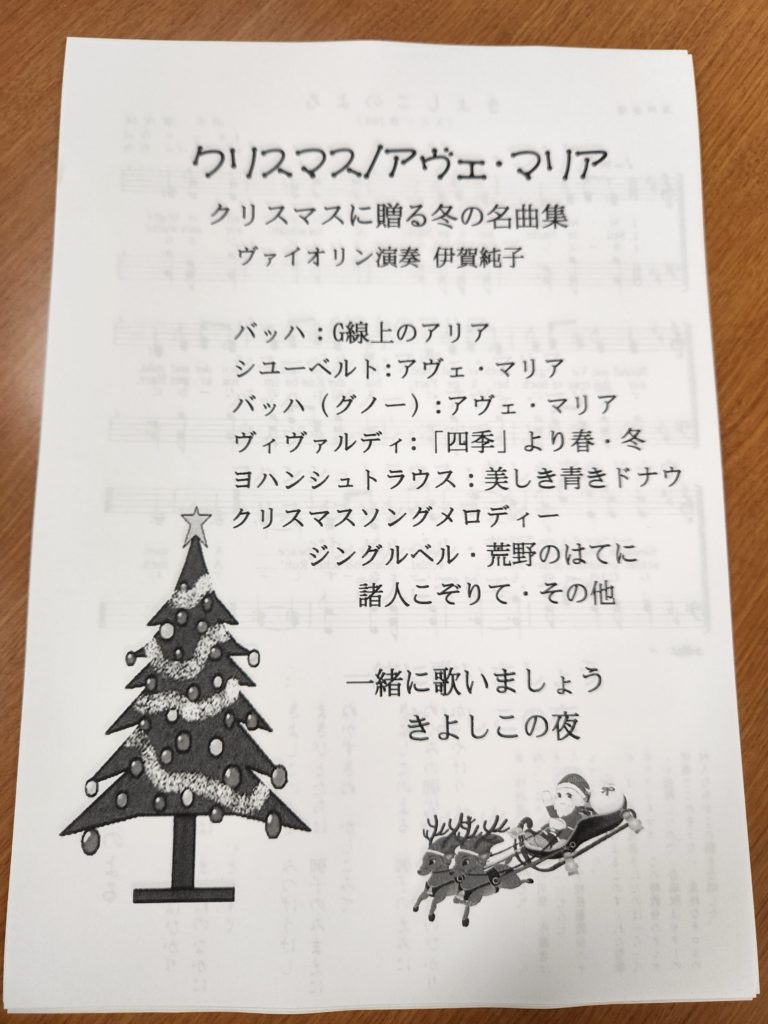 クリスマス/アヴェ・マリア
クリスマスに贈る冬の名曲集
ヴァイオリン演奏 伊賀純子
バッハ：G線上のアリア
シユーベルト：アヴェ・マリア
バッハ（グノー）：アヴェ・マリア
ヴィヴァルディ：「四季」より春・冬
ヨハンシュトラウス：美しき青きドナウ
クリスマスソングメロディー
ジングルベル・荒野のはてに
諸人こぞりて・その他
一緒に歌いましょう
きよしこの夜